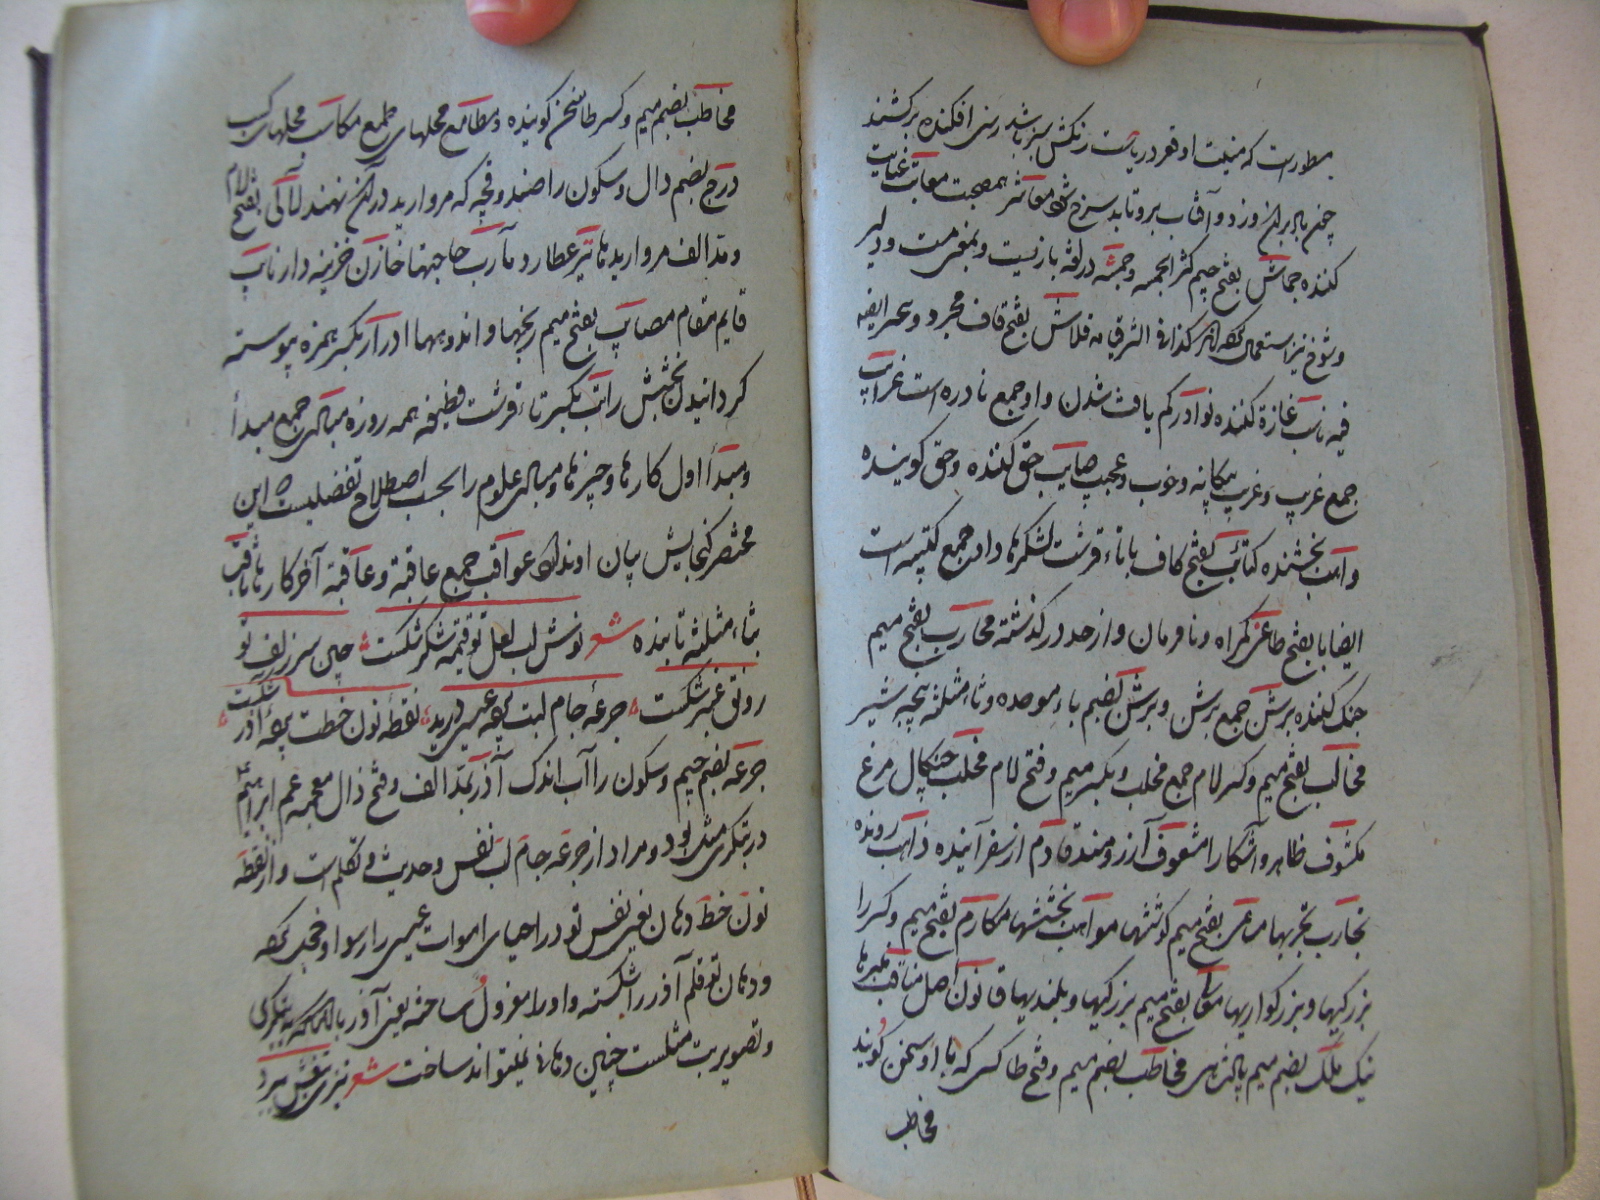 مطورست که منبت او قعر دریاست رنگش سبز باشد رسنی افکنده برکشند
چون باد بران وزد و آفتاب برو تابد سرخ شود معاشر هم صحبت معاتب عتاب
کننده جماش بفتح جیم کثر الجمه وجمشه در لغة بازیست و بمعنی مست و دلیر
و شوخ نیز استعمال کنند کذا فی الشرفیامه قلاش بفتح قاف مجرد و
فیه نایب غازة کننده نوادر کم یافت شدن و او جمع نادره است غرایب
جمع غریب و غریب بیکانه و خوب و عجیب صایب حق کننده و حق کوینده
واهب بخشنده کتائب بفتح کاف با تاء قرشت لشکرها و ان جمع کتیبه است
ایضا با بفتح طاغی کمراه و نافرمان و از حد درکذشته محارب بفتح میم
جنک کننده برثن جمع برثن و برثن بضم باء موحده و ثاء مثلثه پنجه شیر
مخالب بفتح میم و کسر لام جمع مخلب و بکسر میم و فتح لام مخلب چنکال مرغ
مکشوف ظاهر و آشکارا مشعوف آرزومند قادم از سفر آینده ذاهب رونده
تجارب تجربها مساعی بفتح میم کوششها مواهب بخششها مکارم بفتح میم و کسر را
بزرکیها و بزرکواریها معالی بفتح میم بزرکیها و بلندیها قانون اصل مناقب هنرها
نیک ملک بضم میم پادشاهی مخاطب بضم میم و فتح طا کسی که با او سخن کویند
مخاطب
مخاطب بضم میم و کسر طا سخن کوینده و مطامع محلهای طمع مکاسب محلهای کسب
درج بضم دال و سکون را صندوقچه که مروارید در ان نهند لآلی بفتح لام
و مد الف مروارید ها تیر عطارد مآرب حاجتها خازن خزینه دار نایب
قایم مقام مصایب بفتح میم رنجها و اندوهها ادرار بکسر همزه پیوسته
کردانیدن بخشش راتب بکسر تاء قرشت وظیفه همه روزه مبادی جمع مبدأ
و مبدأ اول کارها و چیزها و مبادی علوم را بحسب اصطلاح تفضلیست که این
مختصر کنجایش بیان او ندارد عواقب جمع عاقبة و عاقبة آخر کارها ثاقب
بثاء مثلثه تابنده شعر نوش لب لعل تو قیمه شکر شکست چین سر زلف تو
رونق عنبر شکست جرعه جام لبت پرده عیسی درید نقطه نون خطت پرده آذر شکست
جرعه بضم جیم و سکون را آب اندک آذر بمد الف و فتح ذال معجمه عم ابراهیم
در بتکری مثل بود و مراد از جرعه جام لب نفس و حدیث و تکلم است و از نقطه
نون خط دهان یعنی نفس تو در احیای اموات عیسی را رسوا و خجل کرده
و دهان تو قلم آذر را شکسته و او را معزول ساخته یعنی آذر با انکه در بتکری
و تصویر بت مثلست چنین دهانی نمیتواند ساخت شعر